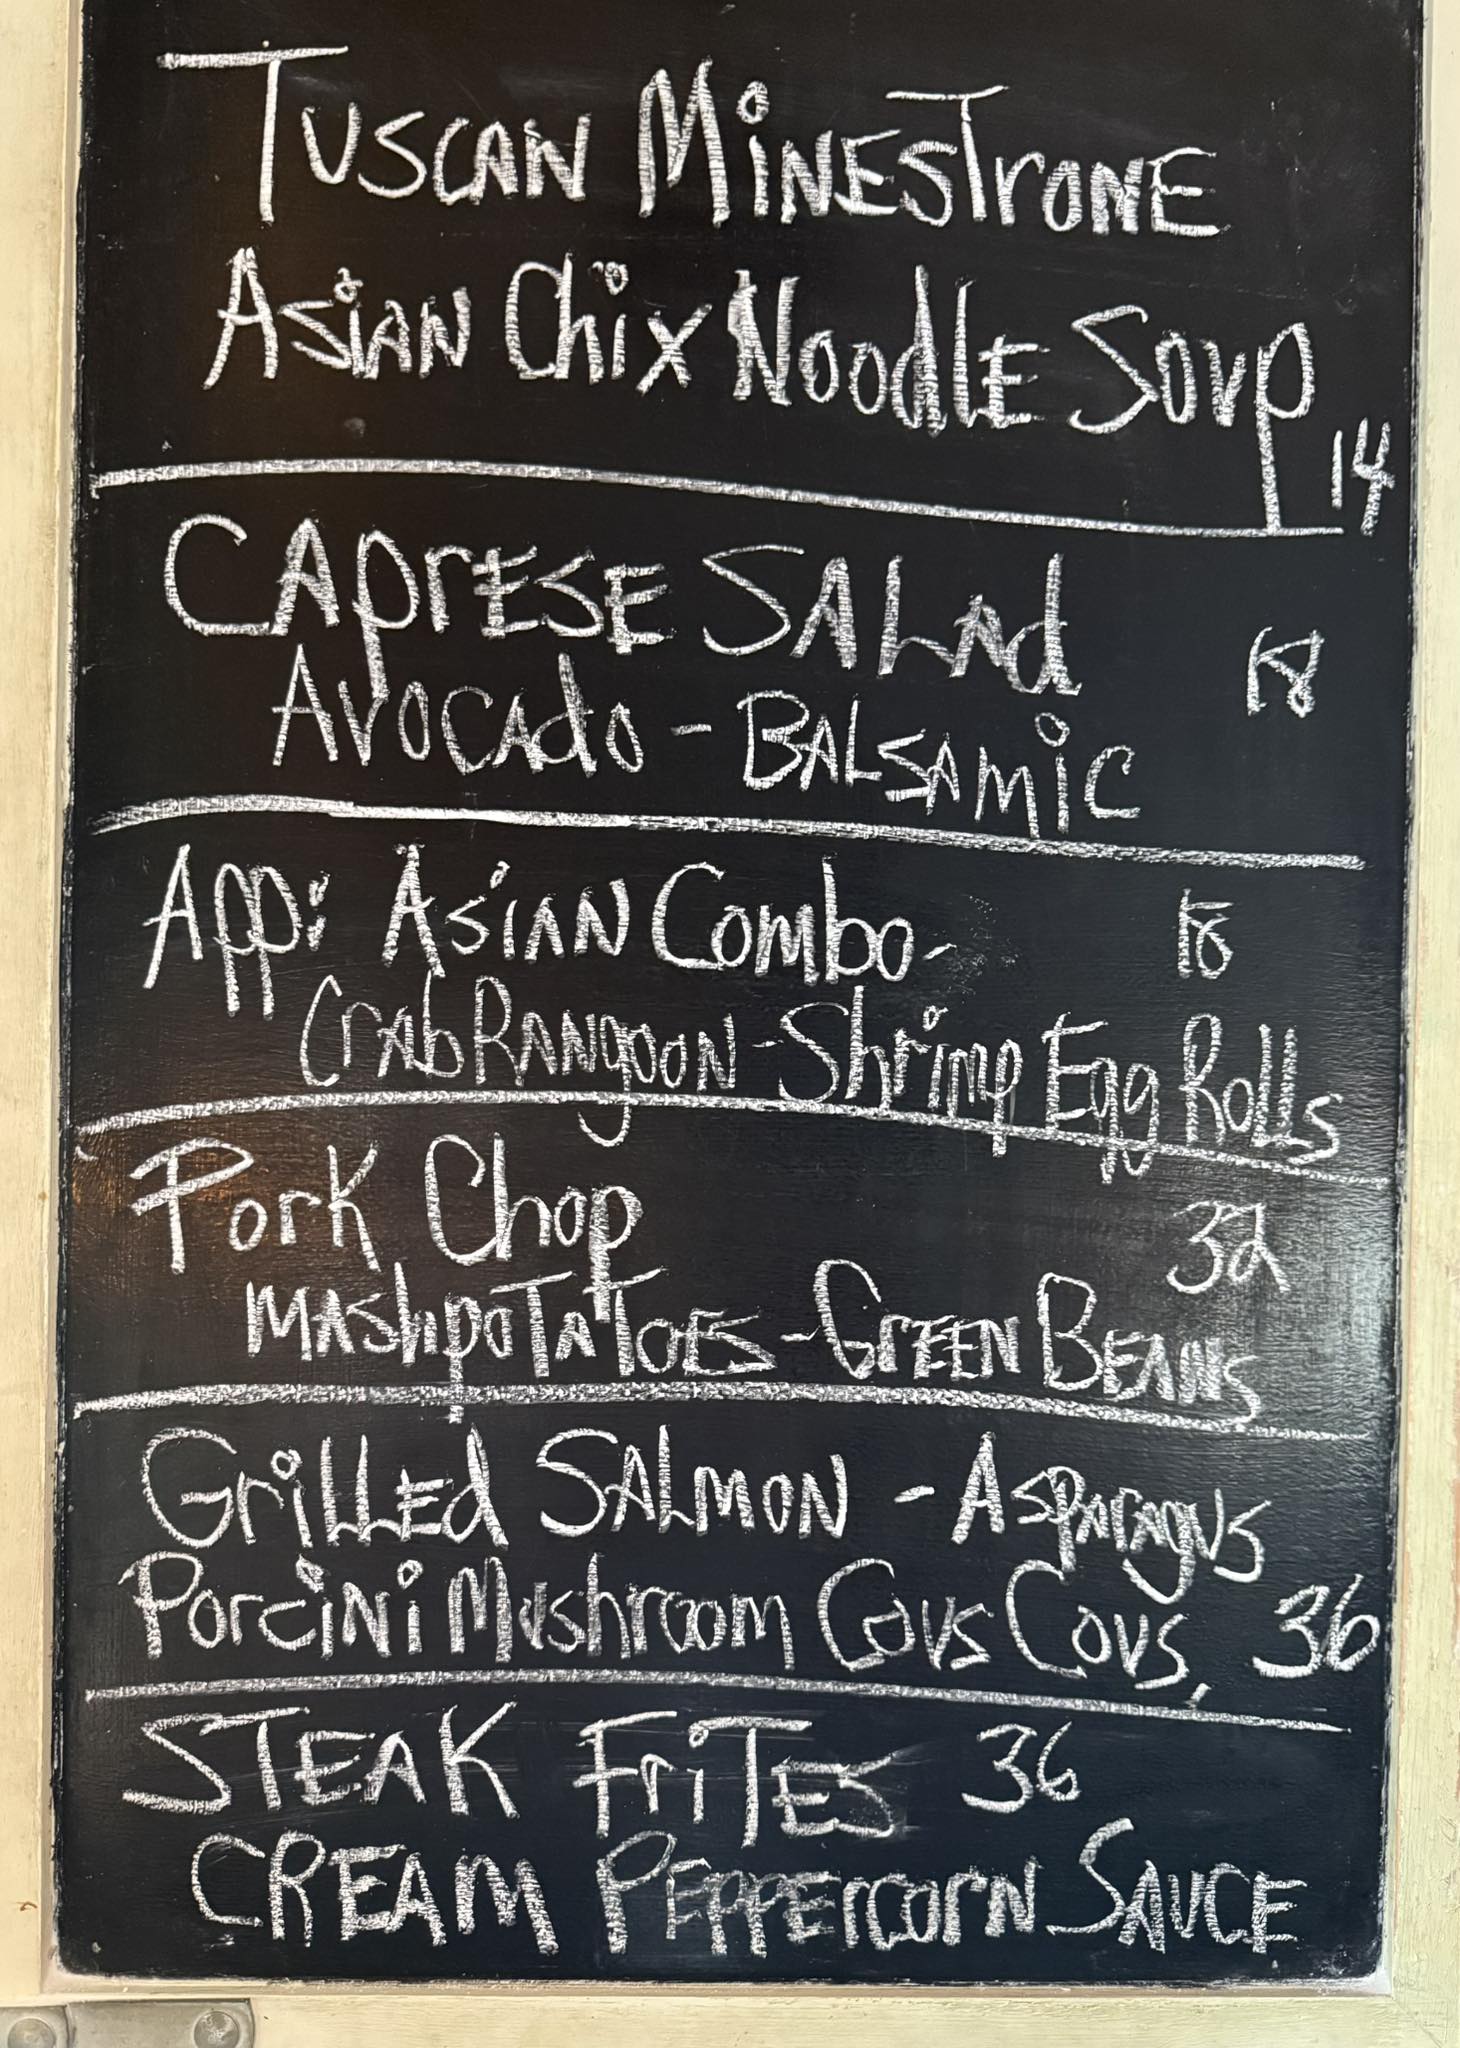 Tuscan Minestrone
Asian Chix Noodle Soup 14
Caprese Salad 18
Avocado - Balsamic
App: Asian Combo - 18
Crab Rangoon - Shrimp Egg Rolls
Pork Chop 32
Mashpotatoes - Green Beans
Grilled Salmon - Asparagus
Porcini Mushroom Cous Cous, 36
Steak Frites 36
Cream Peppercorn Sauce